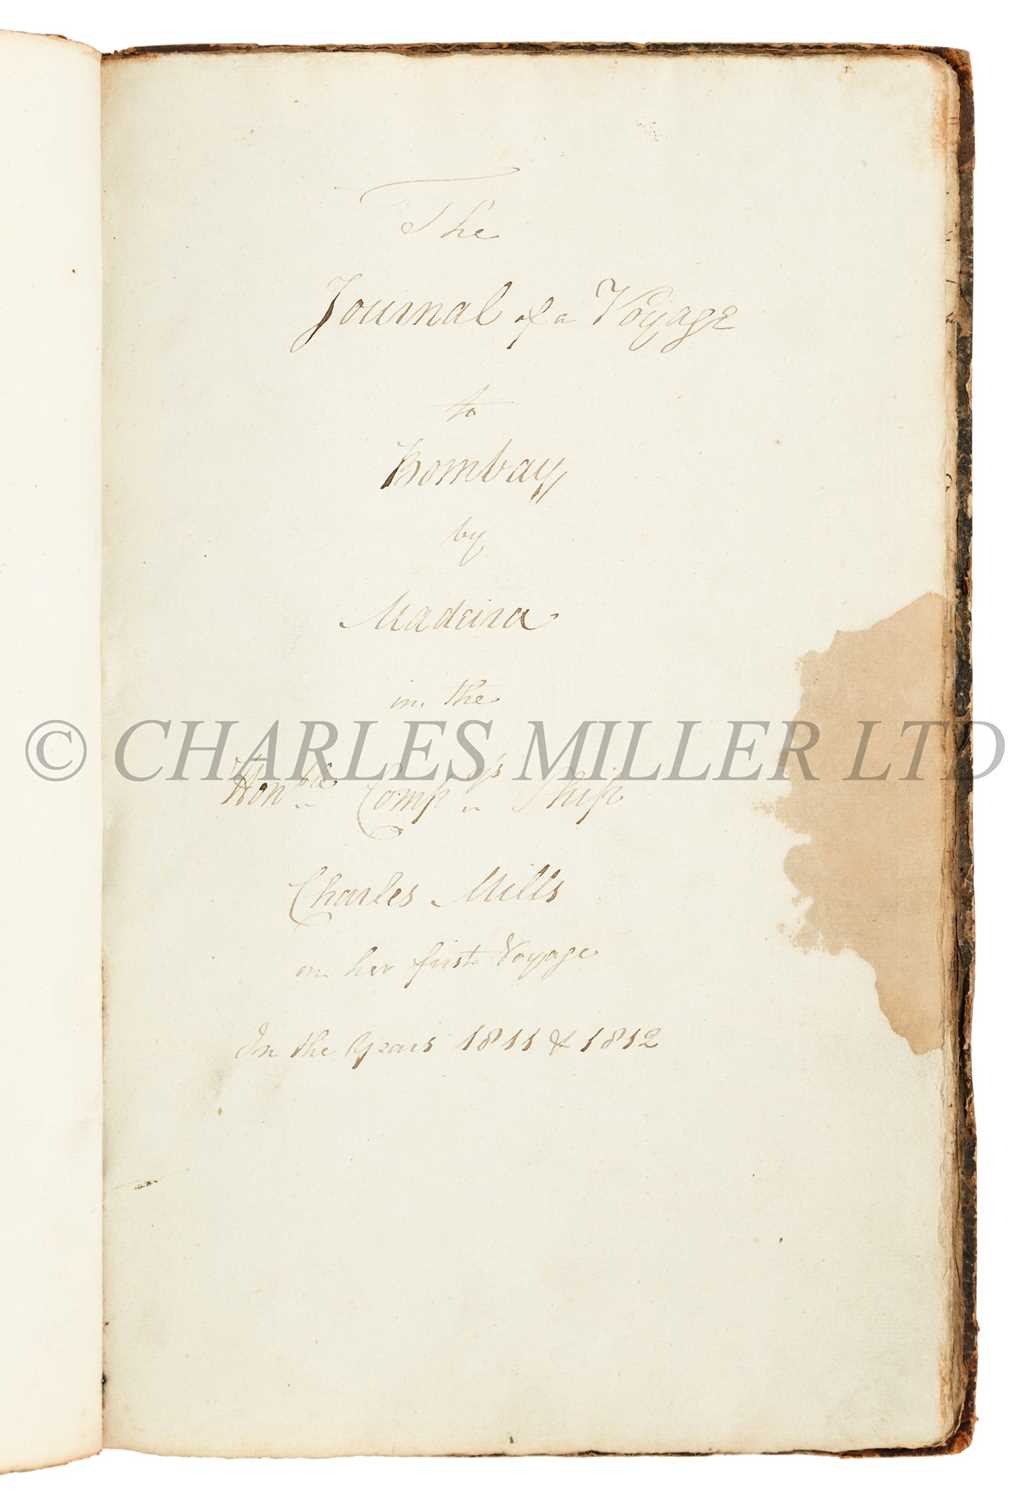 The
Journal of a Voyage
to
Bombay
by
Madeira
in the
© CHARLES MILLER LTD
Honble Compys Ship
Charles Mills
on her first Voyage
In the Years 1811 & 1812